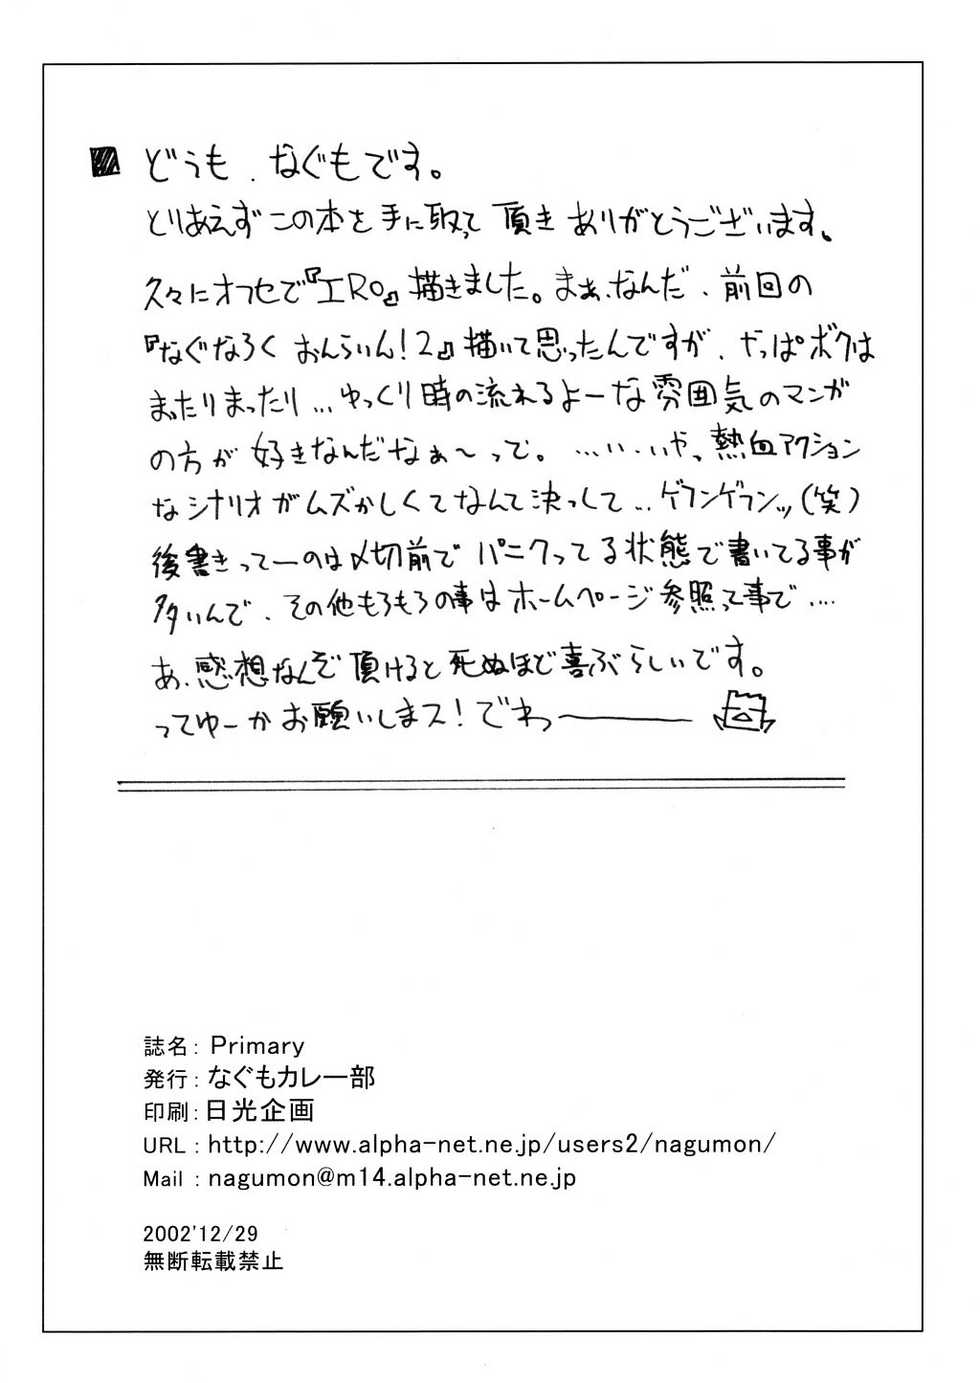 どうも、なぐもです。
とりあえずこの本を手に取って頂きありがとうございます。
久々にオフセで『エRo』描きました。まぁ、なんだ、前回の
『なぐなろくおんらいん!2』描いて思ったんですが、やっぱボクは
まったりまったり…ゆっくり時の流れるよーな雰囲気のマンガ
の方が好きなんだなぁ〜って。…い、いや、熱血アクション
なシナリオがムズかしくてなんて決っして…ゲフンゲフンッ(笑)
後書きってーのは〆切前でパニクってる状態で書いてる事が
多いんで、その他もろもろの事はホームページ参照って事で….
あ、感想なんぞ頂けると死ぬほど喜ぶらしいです。
ってゆーかお願いしまス!でわっ――
誌名: Primary
発行: なぐもカレー部
印刷: 日光企画
URL : http://www.alpha-net.ne.jp/users2/nagumon/
Mail : nagumon@m14.alpha-net.ne.jp
2002'12/29
無断転載禁止